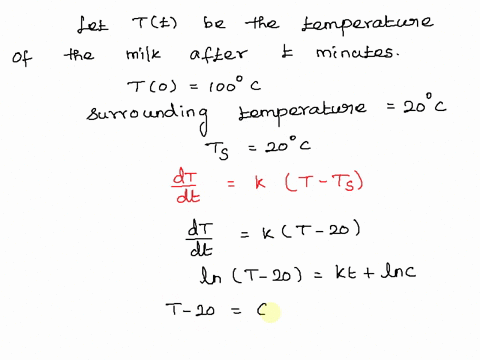 Let T(t) be the temperature
of the milk after t minutes.
T(0) = 100°C
Surrounding temperature = 20°C
T_S = 20°C
dT/dt = k (T-T_S)
dT/dt = k (T-20)
ln (T-20) = kt + lnc
T-20 = C